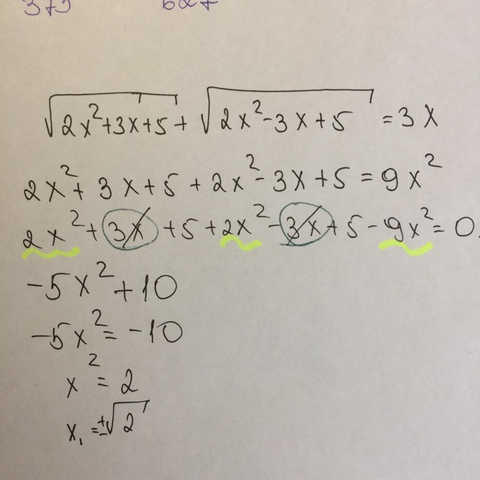 √2x²+3x+5 + √2x²-3x+5 = 3x
2x²+3x+5+2x²-3x+5=9x²
2x²+3x+5+2x²-3x+5-9x²=0.
-5x²+10
-5x²=-10
x²=2
x₁=±√2